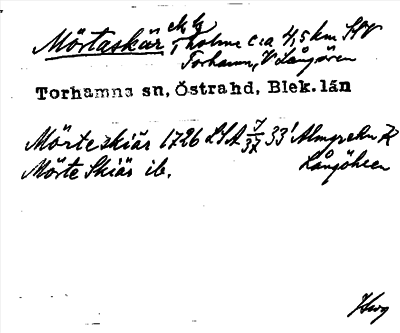 Mörtaskär
holme c:a 4,5 km SSV
Torhamn, V Långören
Torhamns sn, Östrahd, Blek.län
Mörteskiär 1726 LSA 7/37 33' Almgrehn
Mörte Skiär ib.
Hwg